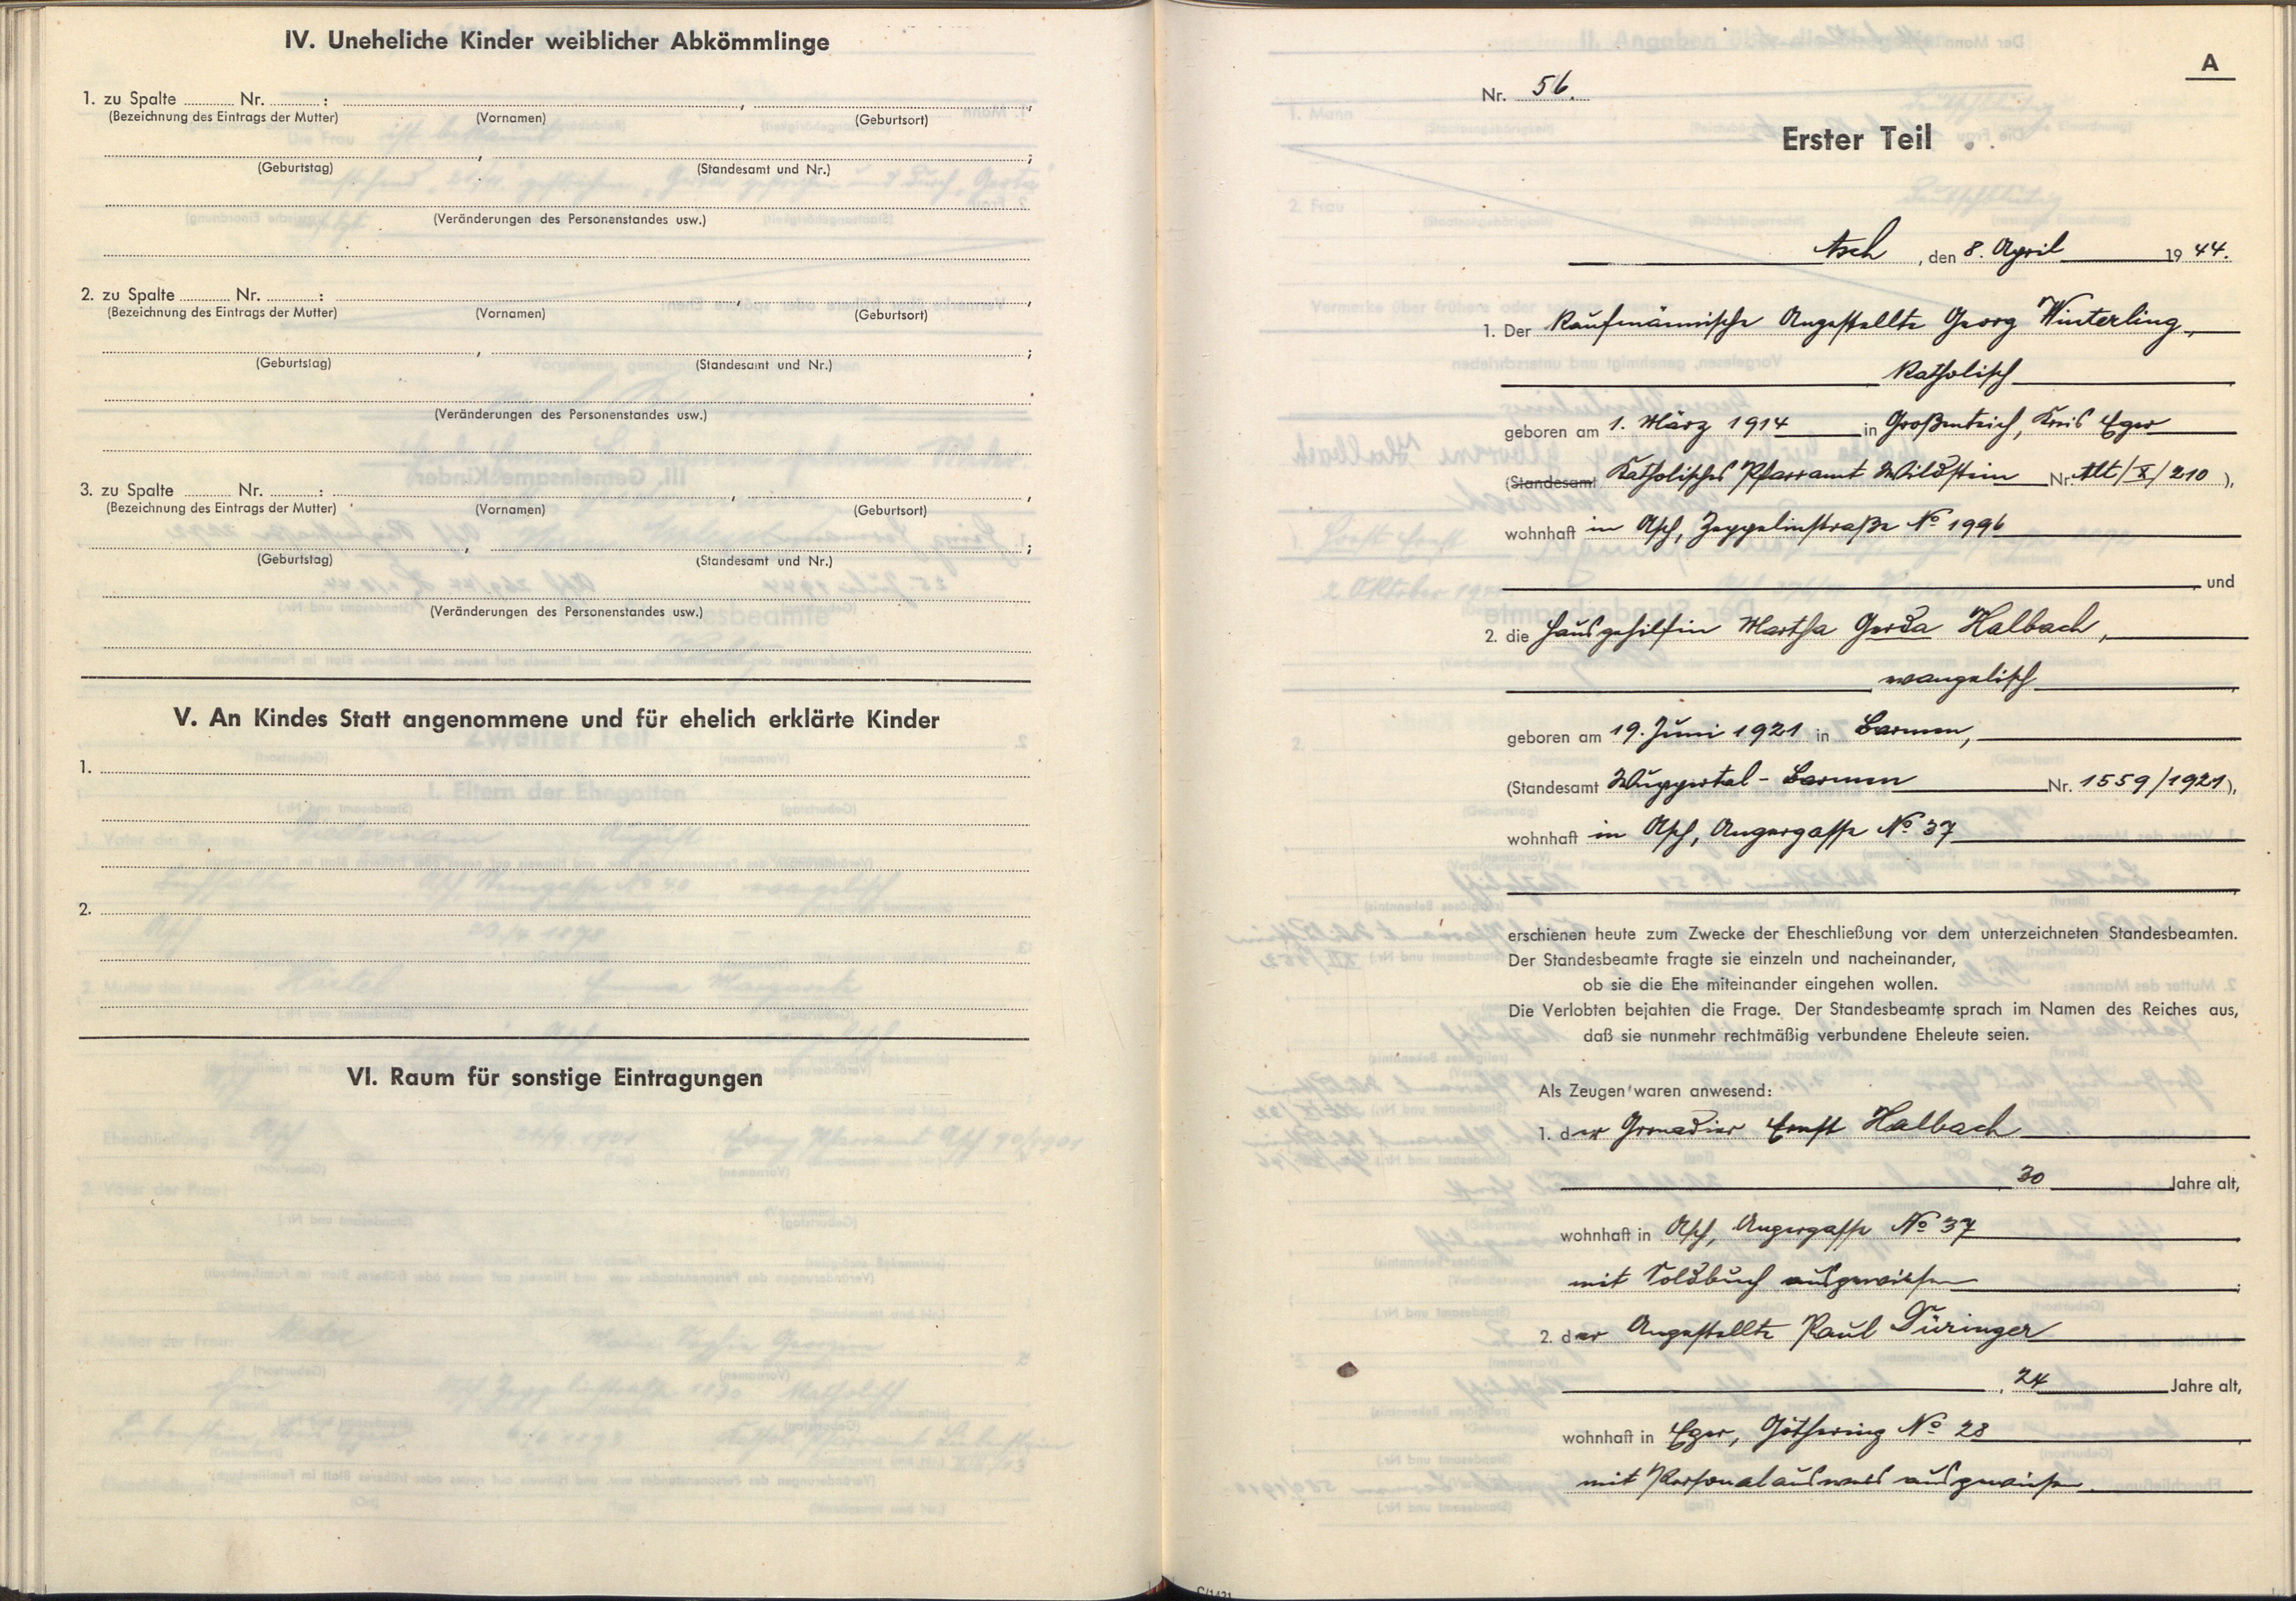 IV. Uneheliche Kinder weiblicher Abkömmlinge
1. zu Spalte ............ Nr. ............ : ............ , ............ ,
(Bezeichnung des Eintrags der Mutter) (Vornamen) (Geburtsort)
(Geburtstag) (Standesamt und Nr.)
(Veränderungen des Personenstandes usw.)
2. zu Spalte ............ Nr. ............ : ............ , ............ ,
(Bezeichnung des Eintrags der Mutter) (Vornamen) (Geburtsort)
(Geburtstag) (Standesamt und Nr.)
(Veränderungen des Personenstandes usw.)
3. zu Spalte ............ Nr. ............ : ............ , ............ ,
(Bezeichnung des Eintrags der Mutter) (Vornamen) (Geburtsort)
(Geburtstag) (Standesamt und Nr.)
(Veränderungen des Personenstandes usw.)
V. An Kindes Statt angenommene und für ehelich erklärte Kinder
1.
2.
VI. Raum für sonstige Eintragungen
A
Nr. 56.
Erster Teil
Asch, den 8. April 1944.
1. Der kaufmännische Angestellte Georg Winterling,
katholisch
geboren am 1. März 1914 in Großenteich, Kreis Eger
(Standesamt Katholisches Pfarramt Wildstein Nr. Alt/X/210),
wohnhaft in Asch, Zeppelinstraße No 1996
, und
2. die Hausgehilfin Martha Gerda Halbach,
evangelisch
geboren am 19. Juni 1921 in Barmen,
(Standesamt Wuppertal-Barmen Nr. 1559/1921),
wohnhaft in Asch, Angergasse No 37
erschienen heute zum Zwecke der Eheschließung vor dem unterzeichneten Standesbeamten.
Der Standesbeamte fragte sie einzeln und nacheinander,
ob sie die Ehe miteinander eingehen wollen.
Die Verlobten bejahten die Frage. Der Standesbeamte sprach im Namen des Reiches aus,
daß sie nunmehr rechtmäßig verbundene Eheleute seien.
Als Zeugen waren anwesend:
1. der Grenadier Ernst Halbach
30 Jahre alt,
wohnhaft in Asch, Angergasse No 37
mit Soldbuch ausgewiesen
2. der Angestellte Paul Düringer
, 24 Jahre alt,
wohnhaft in Eger, Göthering No 28
mit Personalausweis ausgewiesen